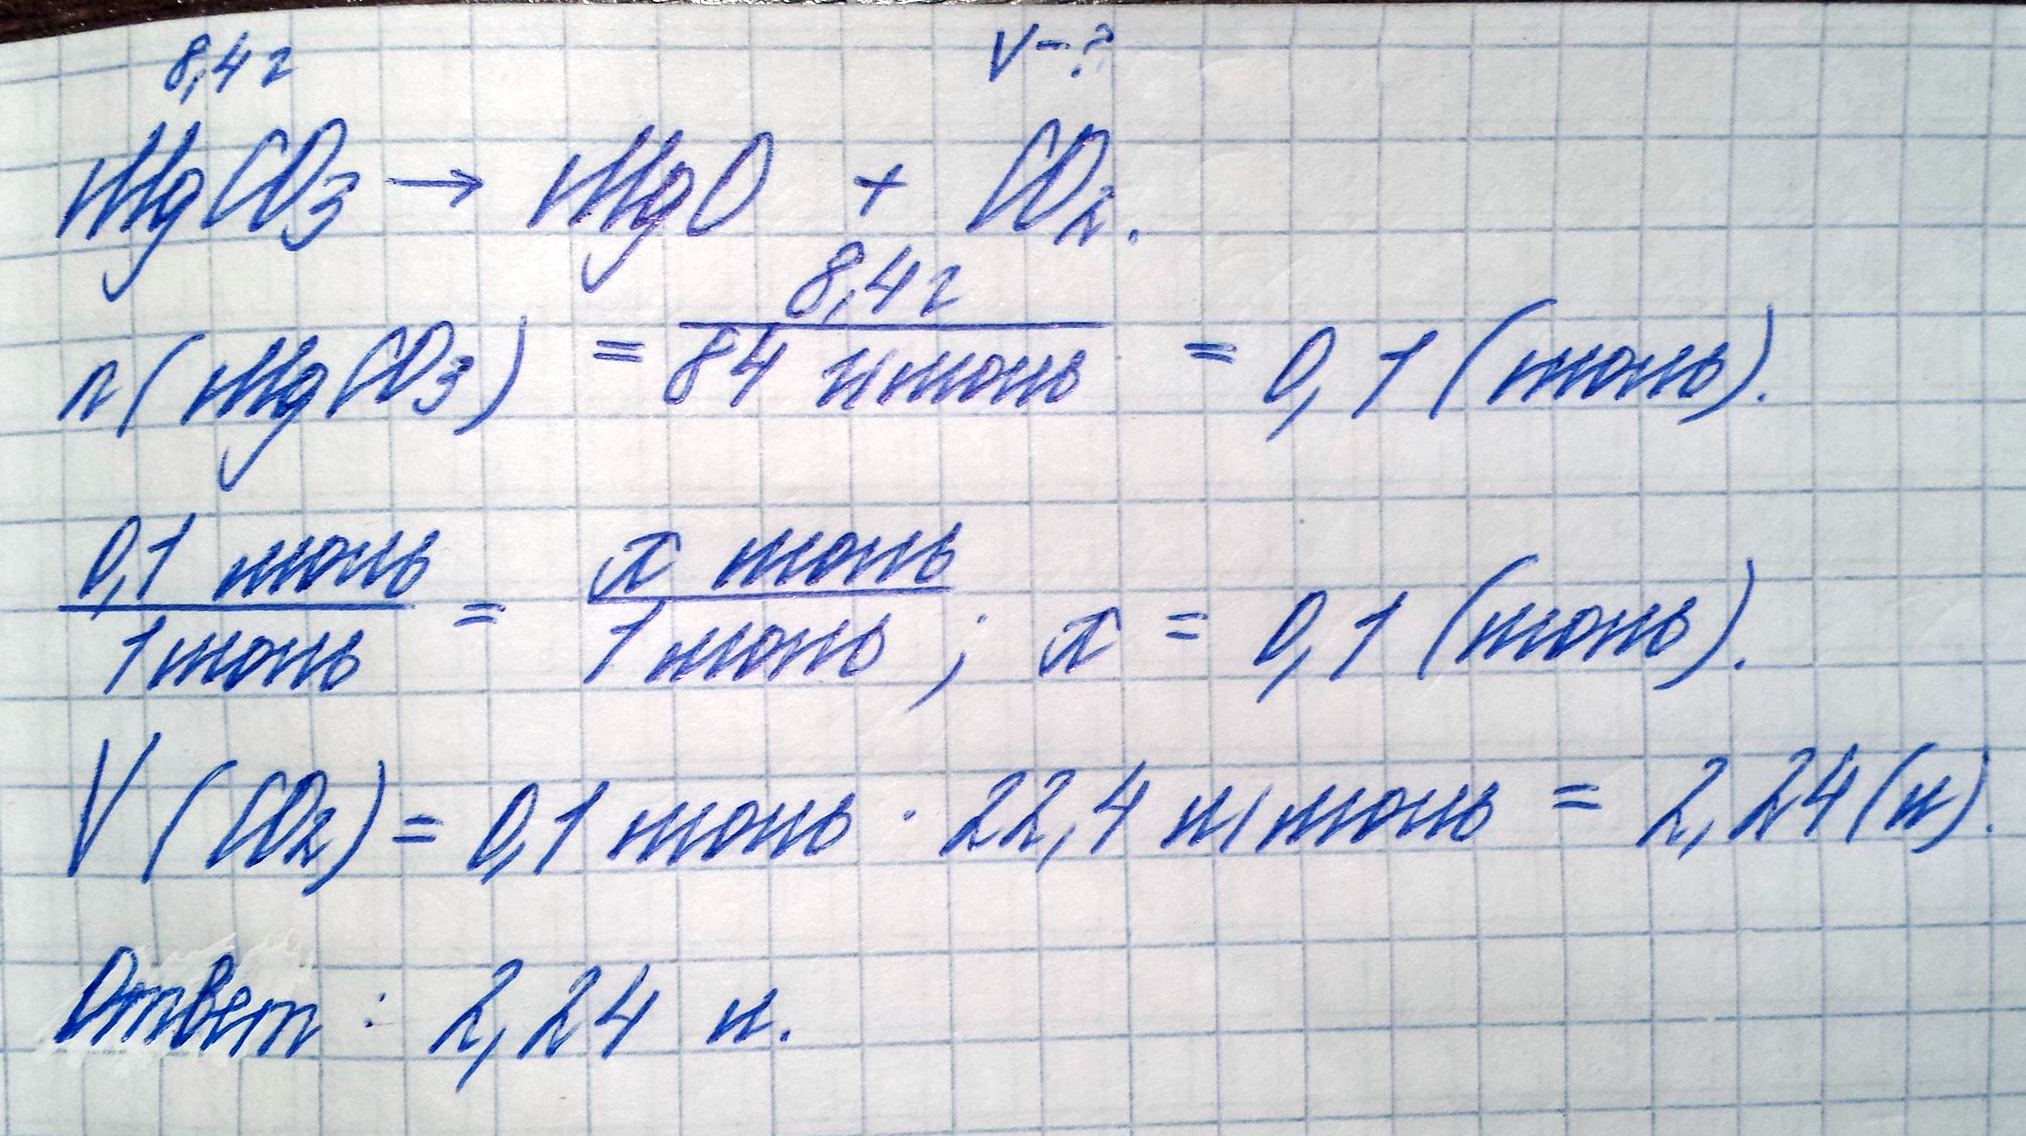 8,4 г V-?
MgCO₃ → MgO + CO₂.
n(MgCO₃) = 8,4 г / 84 г/моль = 0,1 (моль).
0,1 моль / 1 моль = x моль / 1 моль ; x = 0,1 (моль).
V (CO₂) = 0,1 моль · 22,4 л/моль = 2,24 (л).
Ответ : 2,24 л.